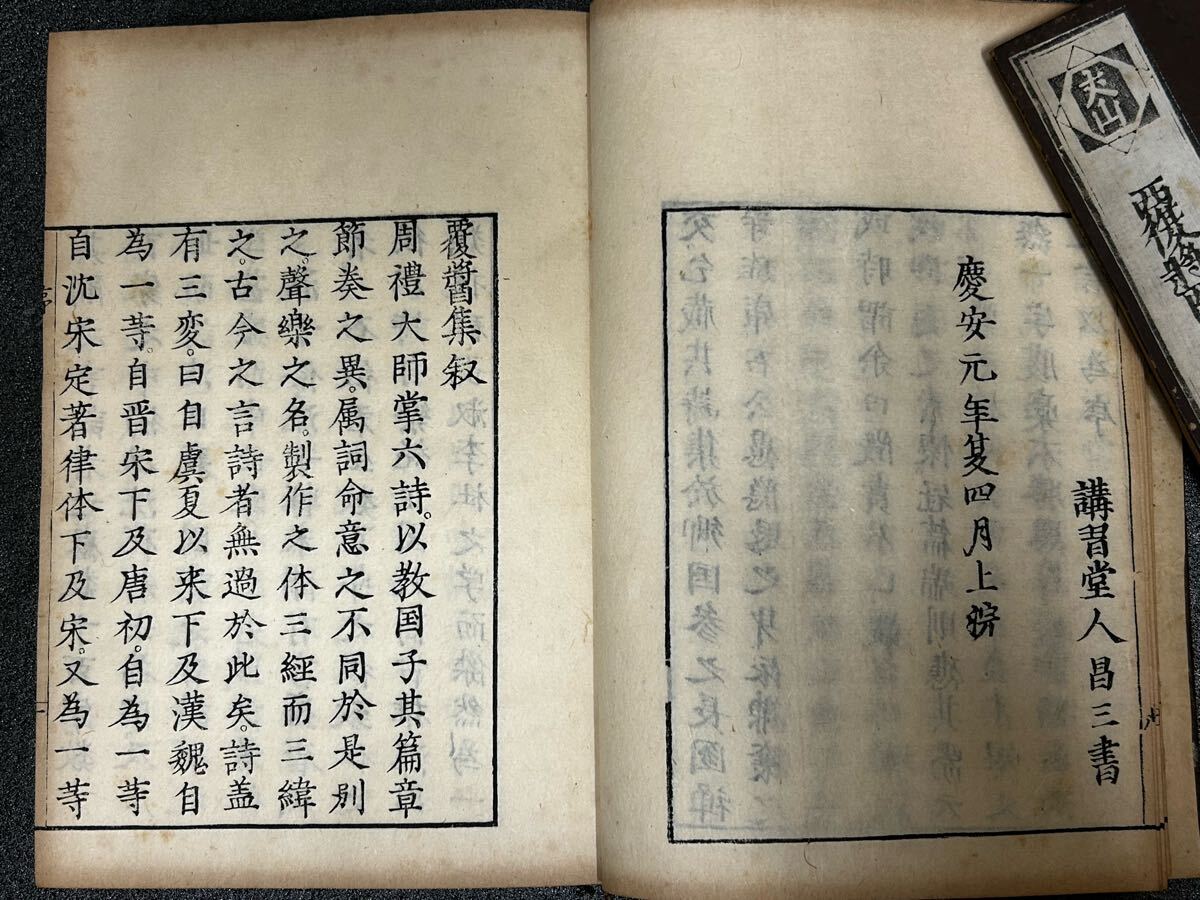 講習堂人昌三書
慶安元年夏四月上澣
覆醬集叙
周禮大師掌六詩。以教国子其篇章
節奏之異。属詞命意之不同於是別
之。聲樂之名。製作之体三經而三緯
之。古今之言詩者無過於此矣。詩盖
有三変。曰自虞夏以来下及漢魏自
為一等。自晋宋下及唐初。自為一等
自沈宋定著律体下及宋。又為一等
序
一
丈山
覆醬